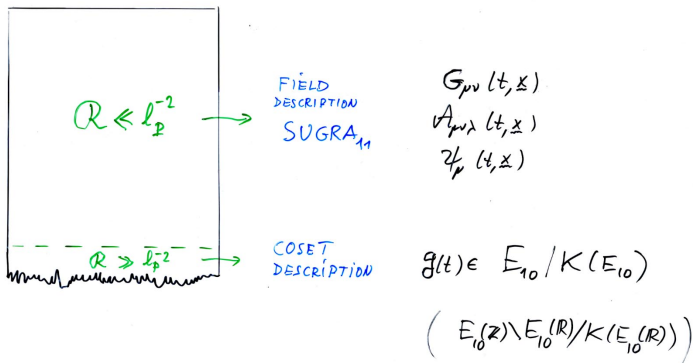 R ≪ l_P^{-2}
FIELD
DESCRIPTION
SUGRA_{11}
G_{μν}(t,x̲)
A_{μνλ}(t,x̲)
ψ_μ(t,x̲)
R ≫ l_P^{-2}
COSET
DESCRIPTION
g(t) ∈ E_{10}/K(E_{10})
(E_{10}(ℤ)\E_{10}(ℝ)/K(E_{10}(ℝ)))